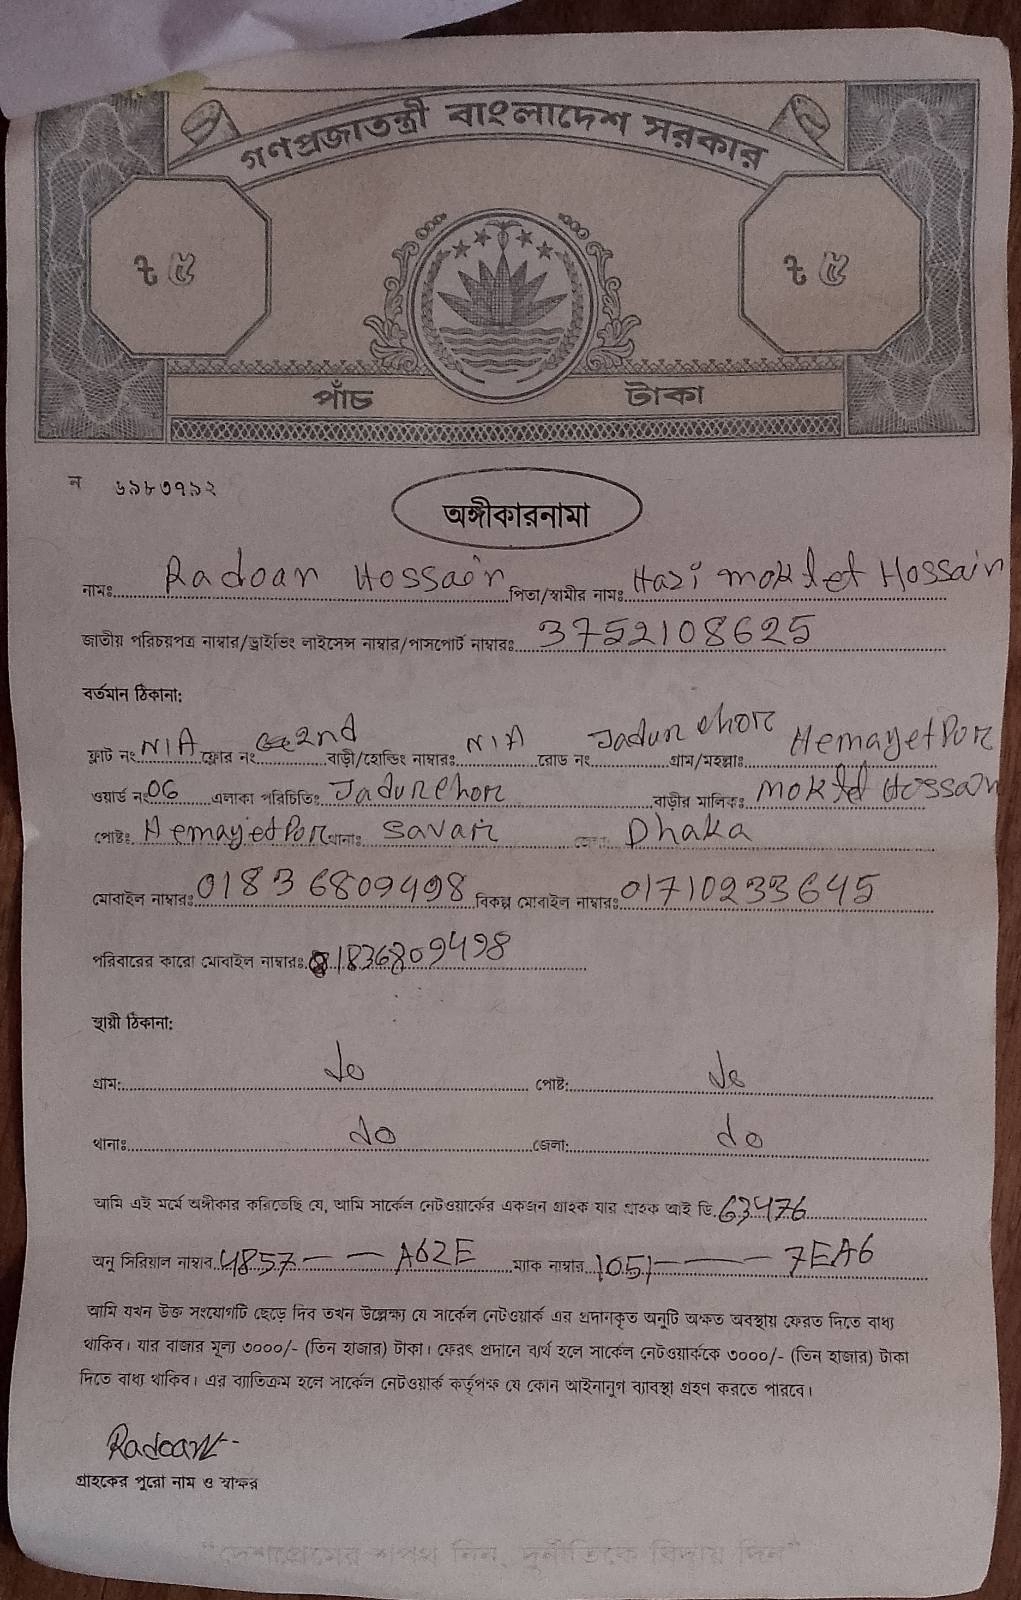 গণপ্রজাতন্ত্রী বাংলাদেশ সরকার
৳ ৫ ৳ ৫
পাঁচ টাকা
ন ৬৯৮৩৭৯২
অঙ্গীকারনামা
নামঃ Radoan Hossain পিতা/স্বামীর নামঃ Hazi moklet Hossain
জাতীয় পরিচয়পত্র নাম্বার/ড্রাইভিং লাইসেন্স নাম্বার/পাসপোর্ট নাম্বারঃ 3752108625
বর্তমান ঠিকানা:
ফ্লাট নং N/A ফ্লোর নং 2nd বাড়ী/হোল্ডিং নাম্বারঃ N/A রোড নং Jadurchor গ্রাম/মহল্লাঃ HemayetPur
ওয়ার্ড নং 06 এলাকা পরিচিতিঃ Jadurchor বাড়ীর মালিকঃ Moklet Hossain
পোষ্টঃ HemayetPur থানাঃ Savar জেলা: Dhaka
মোবাইল নাম্বারঃ 01836809498 বিকল্প মোবাইল নাম্বারঃ 01710233645
পরিবারের কারো মোবাইল নাম্বারঃ 01836809498
স্থায়ী ঠিকানা:
গ্রাম: do পোষ্ট: do
থানাঃ do জেলা: do
আমি এই মর্মে অঙ্গীকার করিতেছি যে, আমি সার্কেল নেটওয়ার্কের একজন গ্রাহক যার গ্রাহক আই ডি 63476
অনু সিরিয়াল নাম্বার 4857 — — A62E ম্যাক নাম্বার 1051 — — 7EA6
আমি যখন উক্ত সংযোগটি ছেড়ে দিব তখন উল্লেক্ষ্য যে সার্কেল নেটওয়ার্ক এর প্রদানকৃত অনুটি অক্ষত অবস্থায় ফেরত দিতে বাধ্য
থাকিব। যার বাজার মূল্য ৩০০০/- (তিন হাজার) টাকা। ফেরৎ প্রদানে ব্যর্থ হলে সার্কেল নেটওয়ার্ককে ৩০০০/- (তিন হাজার) টাকা
দিতে বাধ্য থাকিব। এর ব্যতিক্রম হলে সার্কেল নেটওয়ার্ক কর্তৃপক্ষ যে কোন আইনানুগ ব্যাবস্থা গ্রহণ করতে পারবে।
Radoan
গ্রাহকের পুরো নাম ও স্বাক্ষর
"দেশপ্রেমের শপথ নিন, দুর্নীতিকে বিদায় দিন"